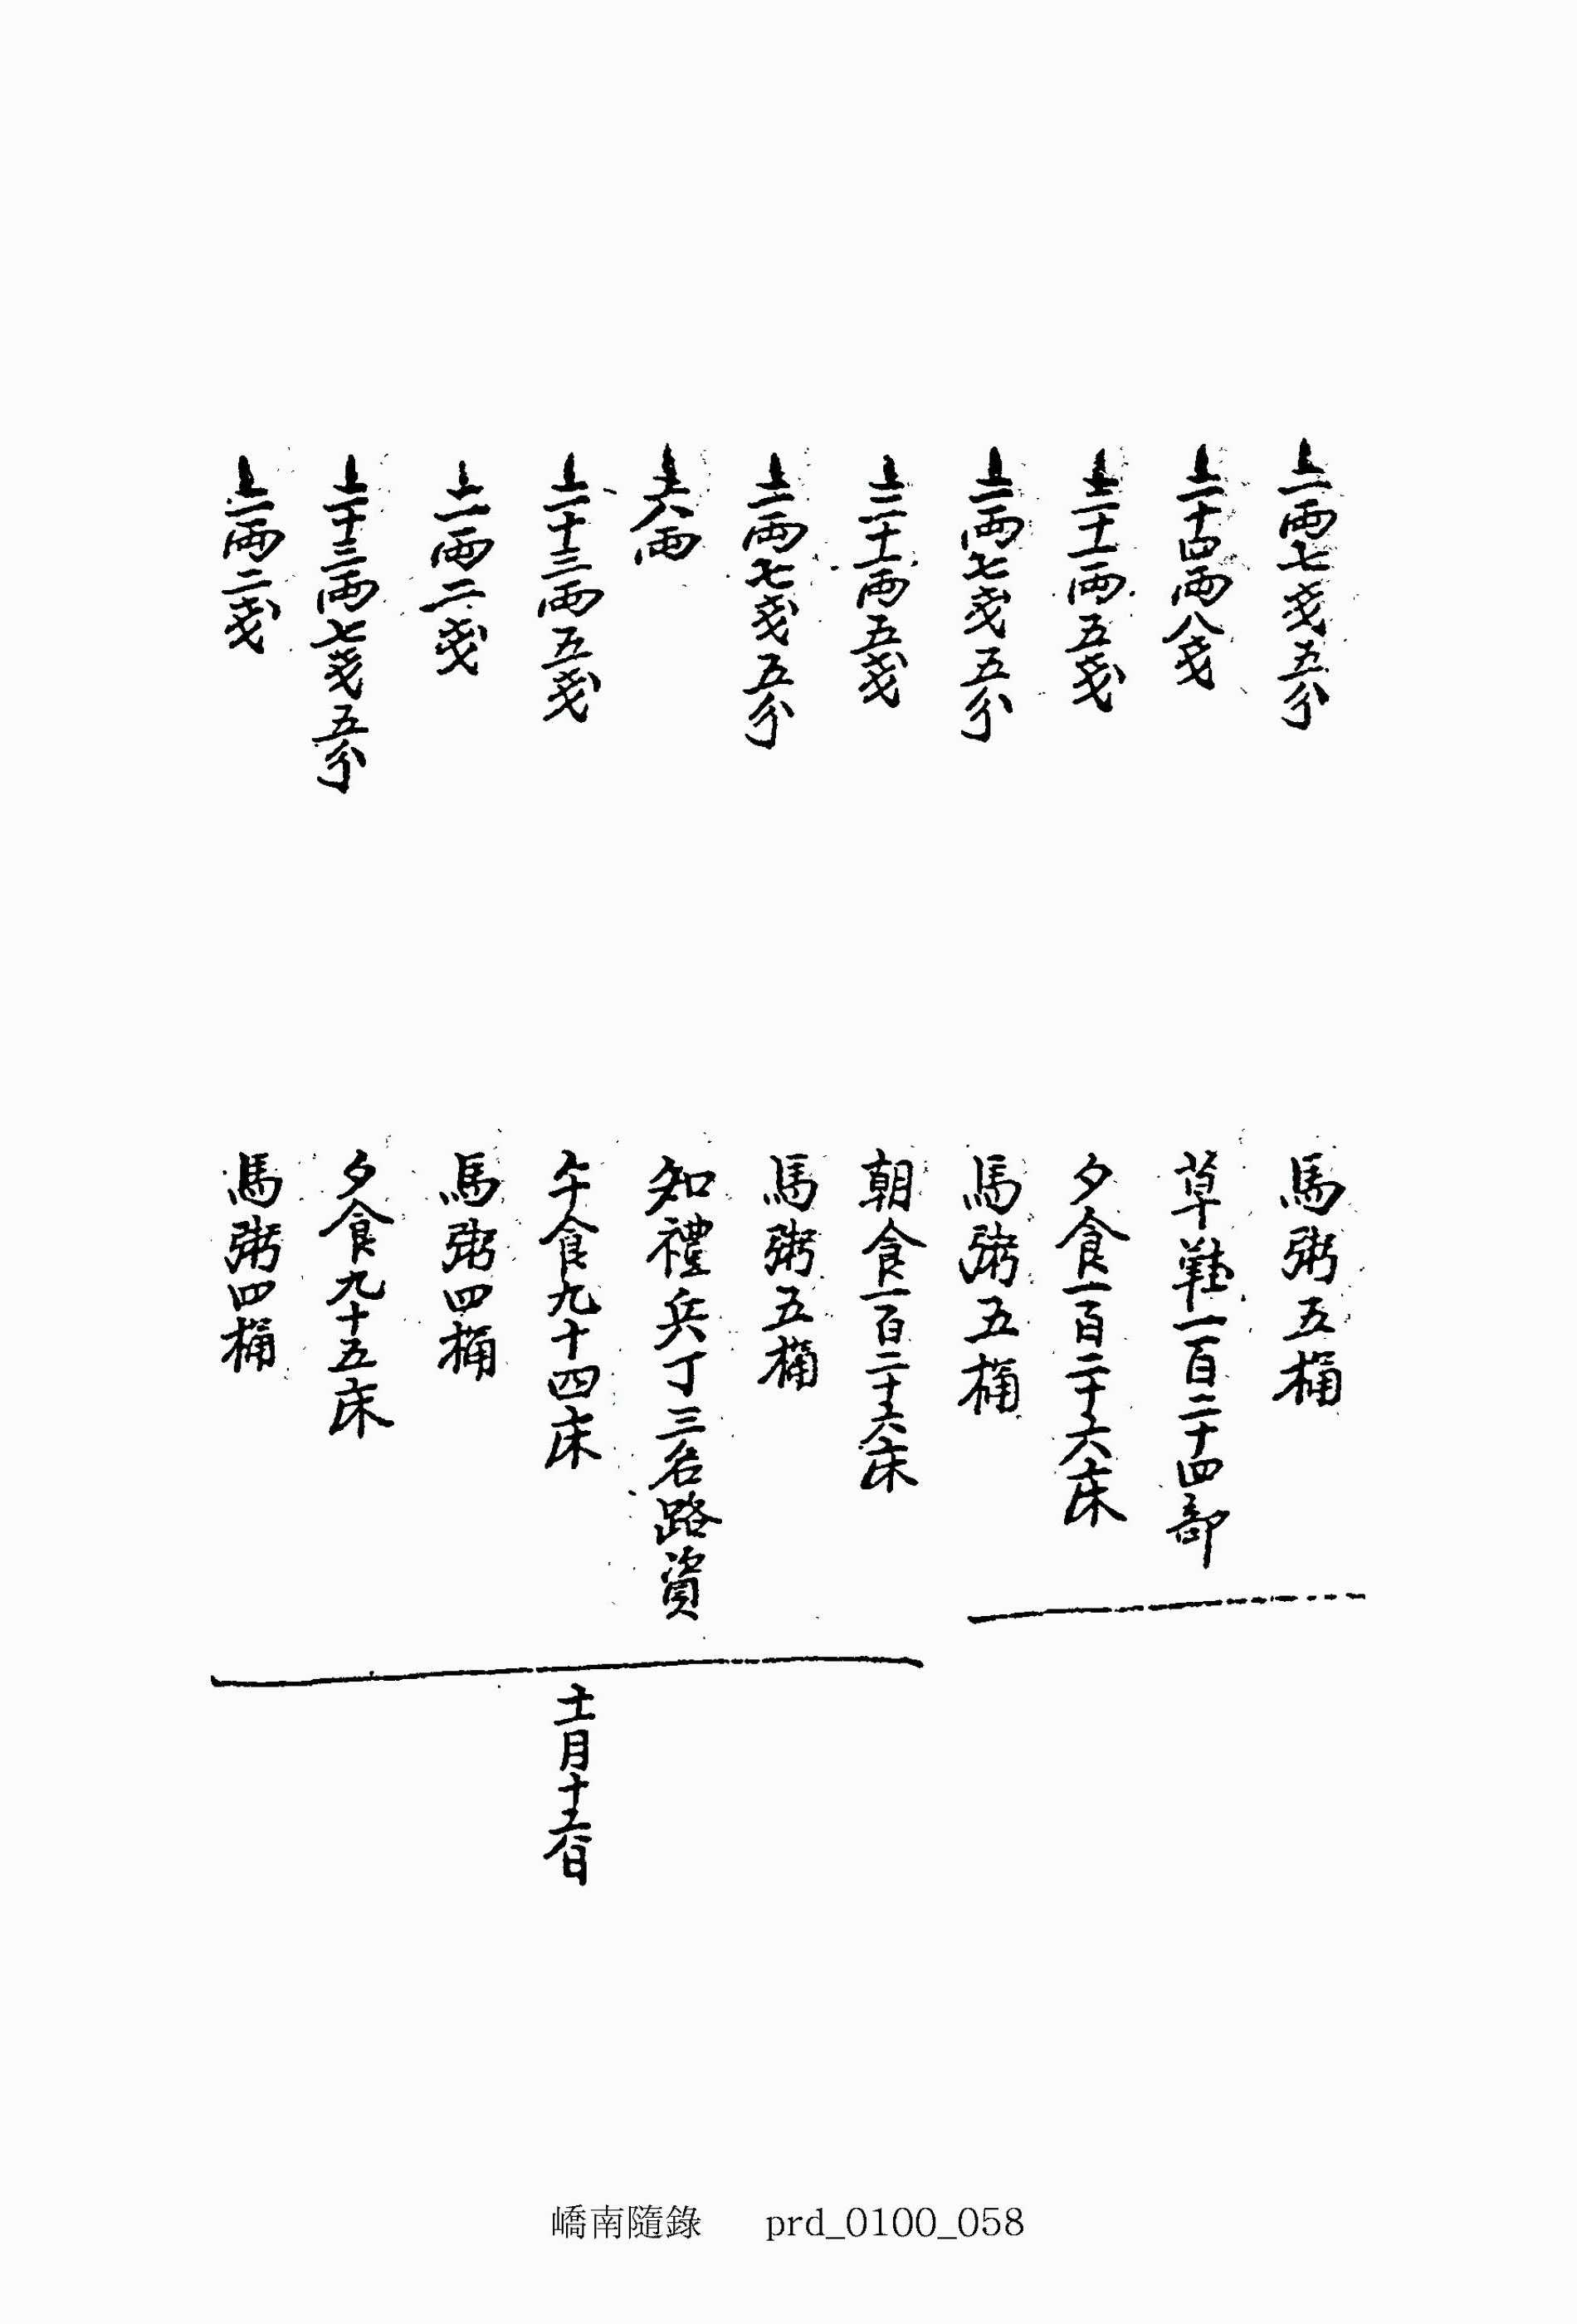 上一両七戔五分 馬粥五桶
上二十四両八戔 草鞋一百二十四部
上三十一両五戔 夕食一百二十六床
上一両七戔五分 馬粥五桶
上三十一両五戔 朝食一百二十六床
上一両七戔五分 馬粥五桶
上六両 知禮兵丁三名路資
上二十三両五戔 午食九十四床
十一月十六日
上一両二戔 馬粥四桶
上二十三両七戔五分 夕食九十五床
上一両二戔 馬粥四桶
嶠南隨錄 prd_0100_058